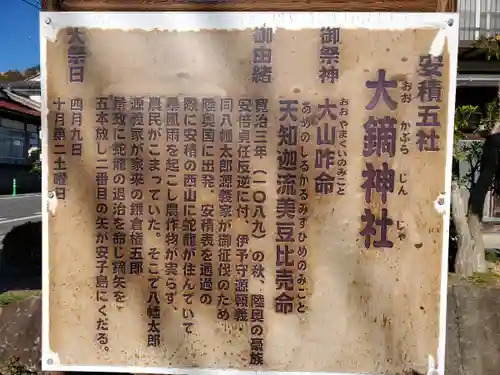 安積五社
大鏑神社
おお かぶら じん じゃ
御祭神
大山咋命
おおやまくいのみこと
天知迦流美豆比売命
あめのしるかるみずひめのみこと
御由緒
寛治三年(一〇八九)の秋、陸奥の豪族
安倍貞任反逆に付、伊予守源頼義・
同八幡太郎源義家が御征伐のため
陸奥国に出発。安積表を通過の
際に安積の西山に蛇龍が住んでいて
暴風雨を起こし農作物が実らず、
農民がこまっていた。そこで八幡太郎
源義家が家来の鎌倉権五郎
景政に蛇龍の退治を命じ鏑矢を
五本放し二番目の矢が安子島にくだる。
大祭日
四月九日
十月第二土曜日